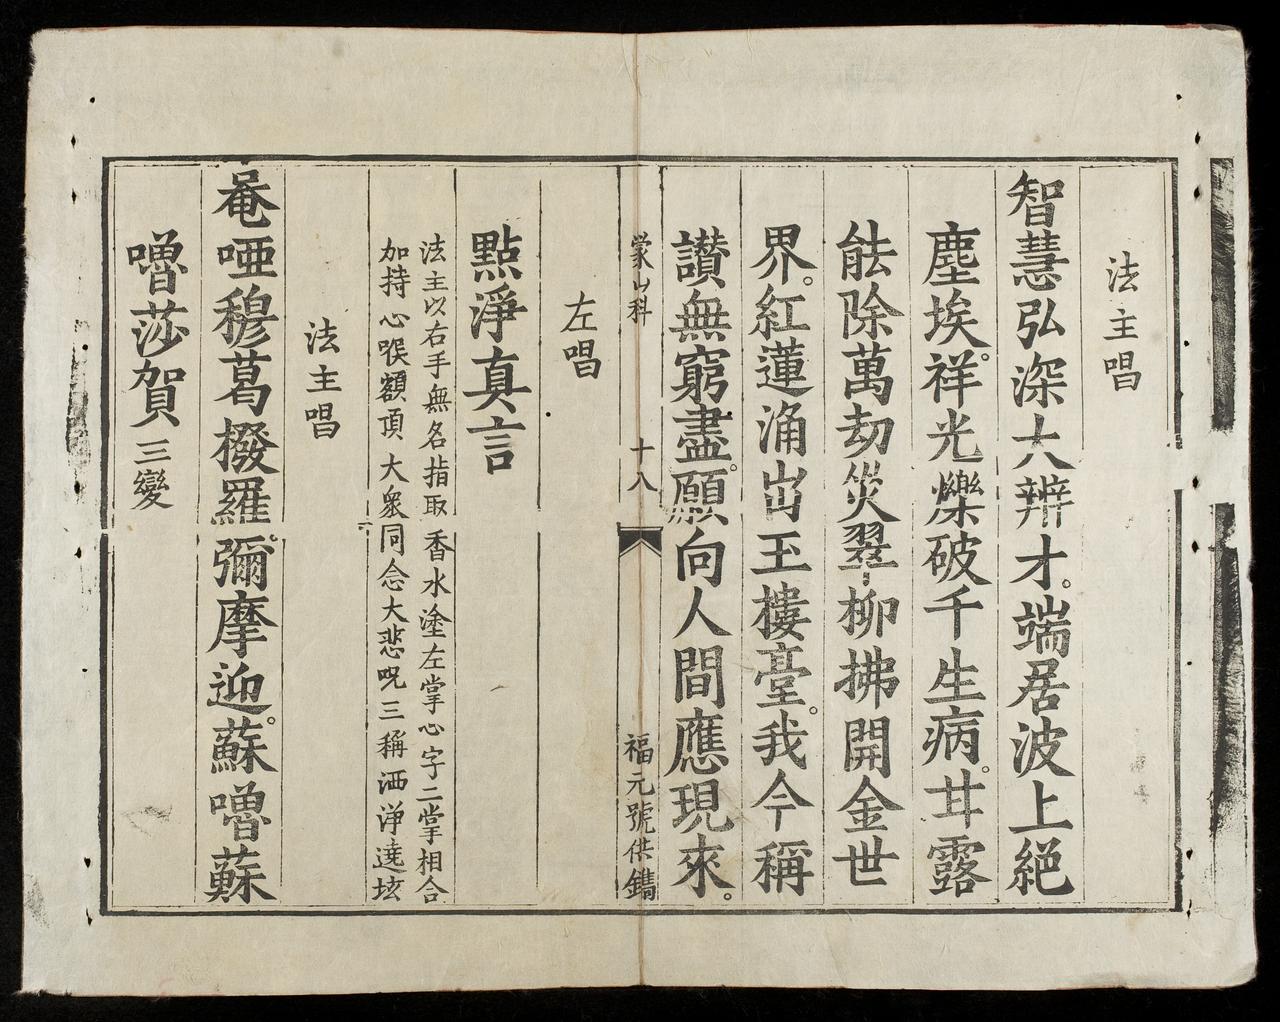 法主唱
智慧弘深大辨才。端居波上絕
塵埃。祥光爍破千生病。甘露
能除萬劫災翠柳拂開金世
界。紅蓮涌出玉樓臺。我今稱
讚無窮盡。願向人間應現來。
蒙山科 十八 福元號供鐫
左唱
點淨真言
法主以右手無名指取香水塗左掌心字二掌相合
加持心喉額頂大眾同念大悲呪三稱洒淨遶垓
法主唱
菴哑穆葛撥羅。彌摩迎。蘇嚕蘇
嚕莎賀三變